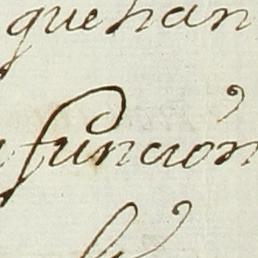 que han
funcion